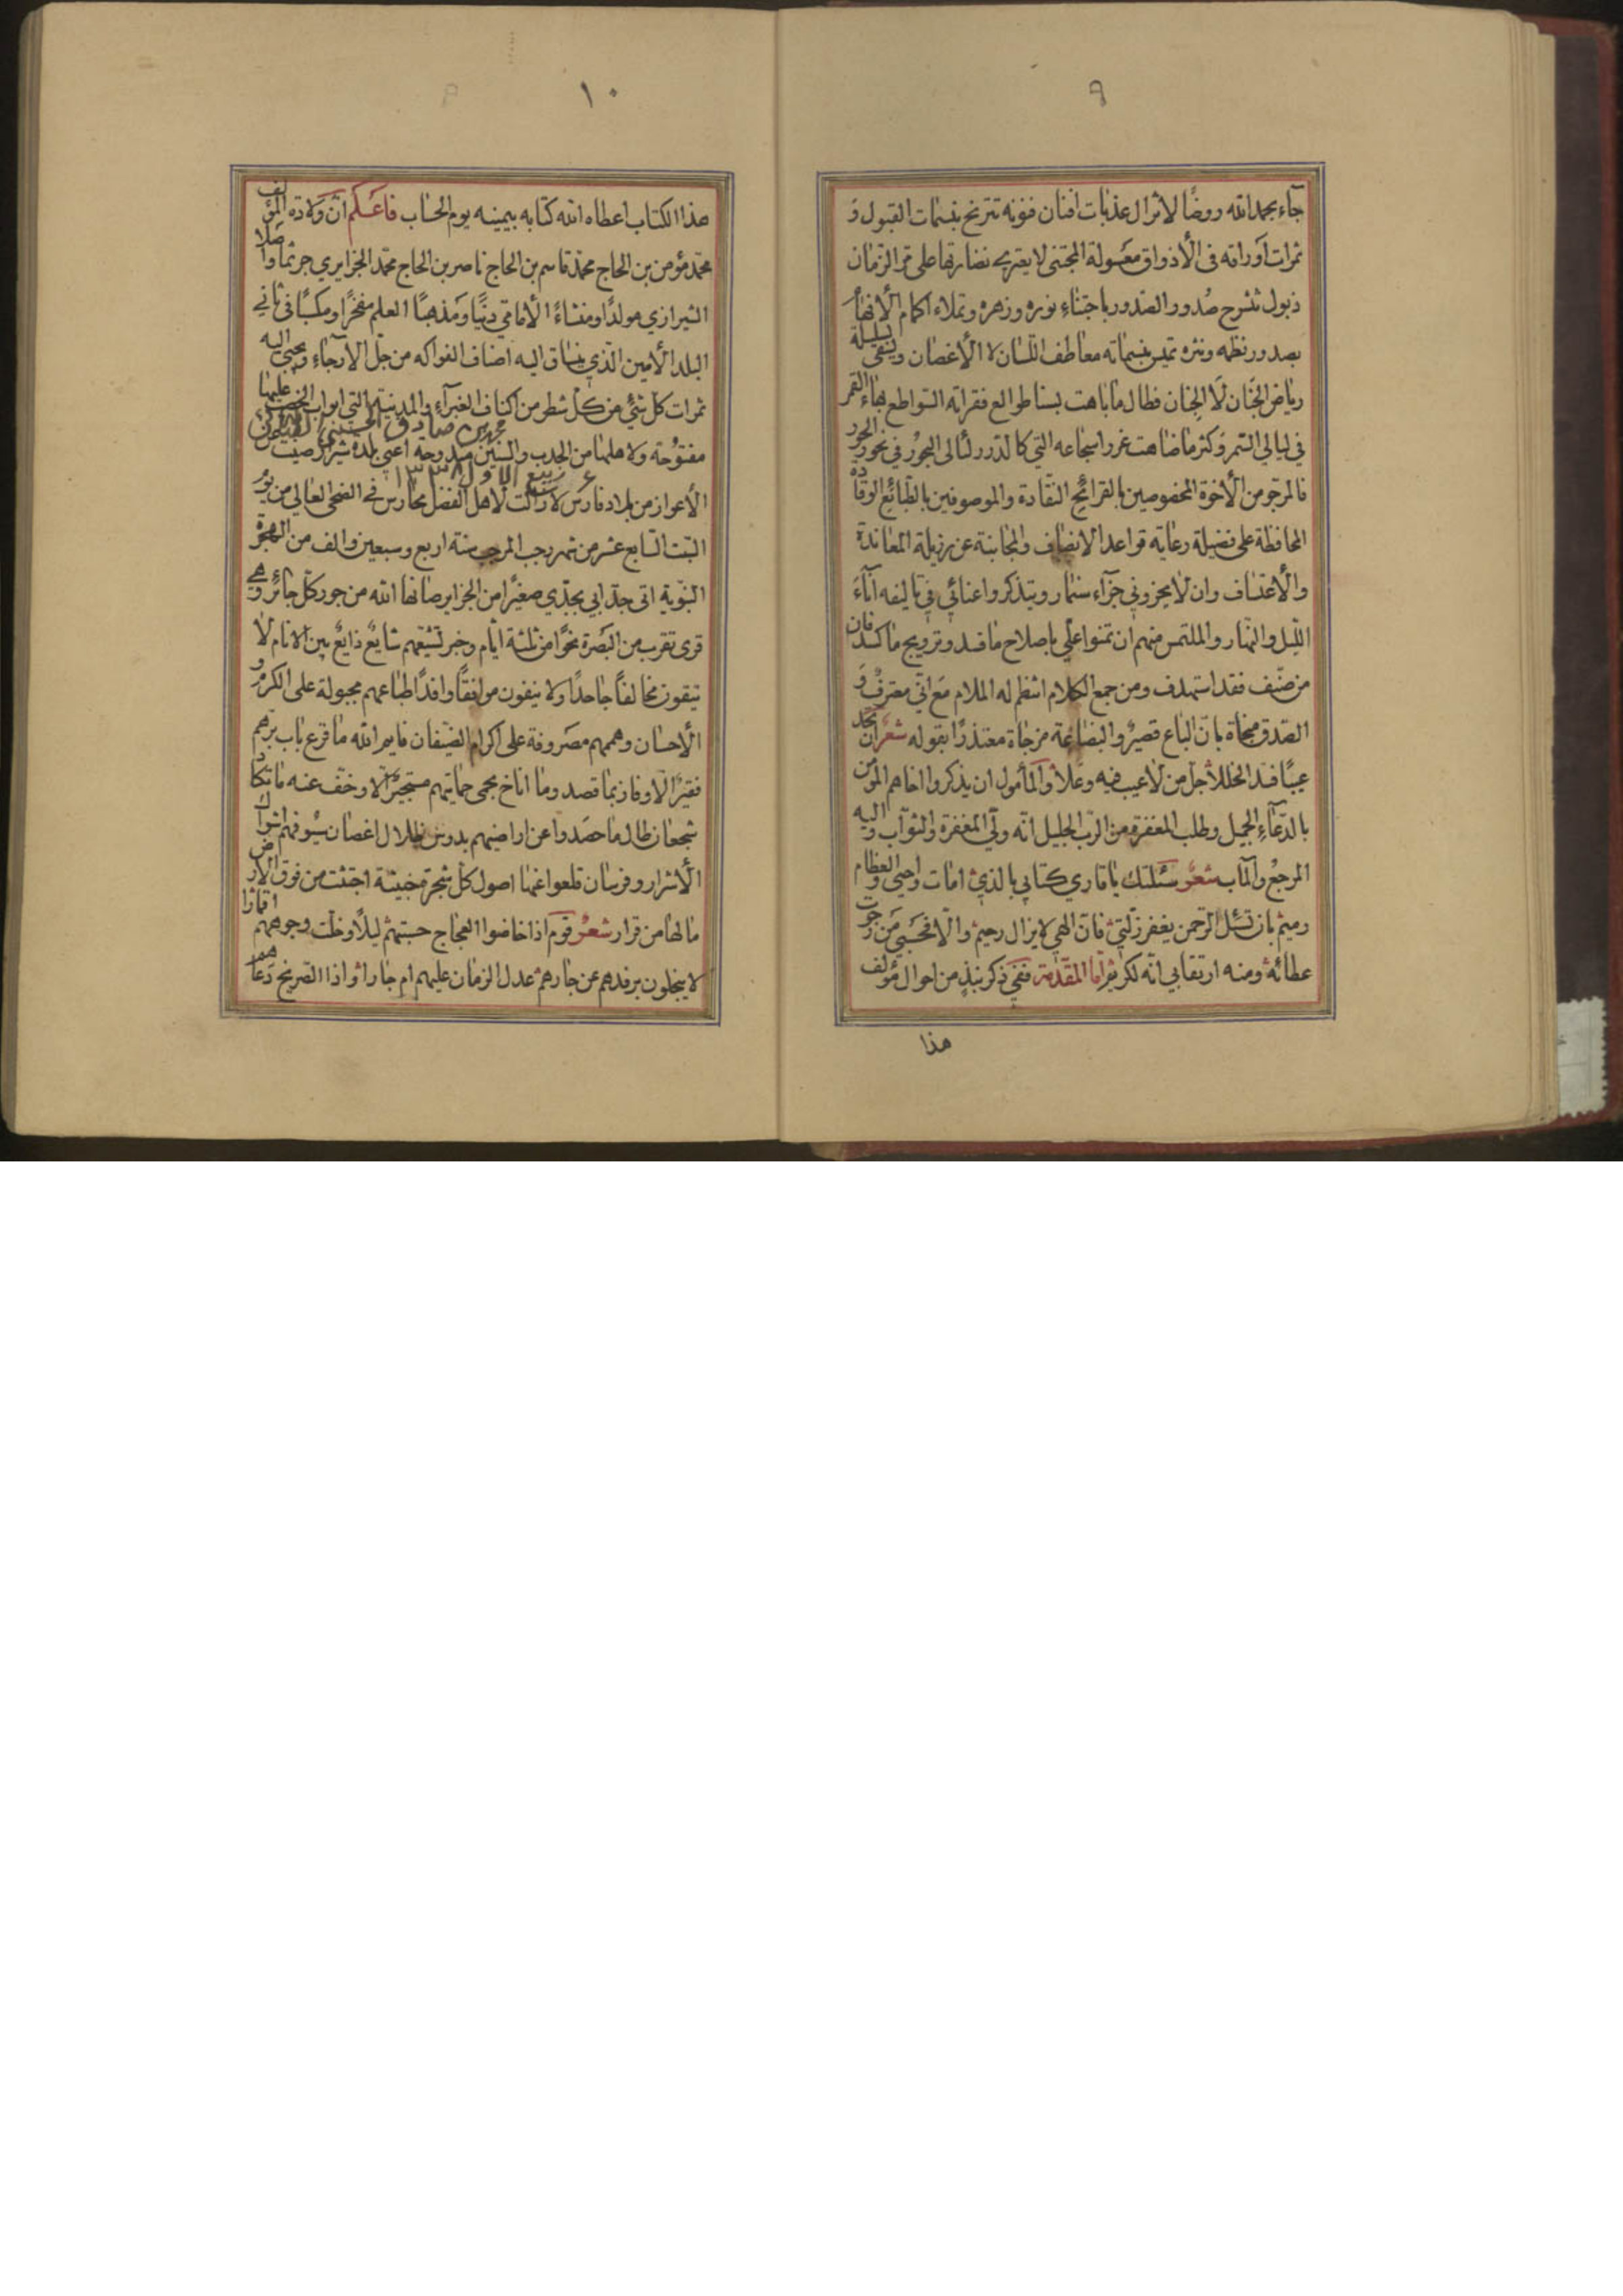 ٩
جآء بحمد الله روضًا لا تزال عذبات افنان فنونه تترنح بنسمات القبول و
ثمرات اوراقه فى الأذواق معسولة المجتنى لا يعتريـ نضارتها على مر الزمان
ذبول تشرح صُدور الصّدور باجتناء نوره وزهره وتملاء اكمام الأفهام
بصدور نظمه ونثره تميس بنسماته معاطف اللسان لا الأغصان ويسقى بسلسله
رياض الجَنان لَا الجِنان فطال ما باهت بسناطوالع فقراته السّواطع بهاء القمر
في ليالي السّمر وكثر ما ضاهت غرر اسجاعه التي كالدّرر لئالى البحُور في نحور الحور
فالمرجو من الأخوة المخصوصين بالقرائح النقّادة والموصوفين بالطّبائع الوقّادة
المحافظة على فضيلة رعاية قواعد الانصاف والمجانبة عن رذيلة المعاندة
والأعتساف وان لا يجزوني جزآء سنمار ويتذكروا عنائي في تاليفه انآء
اللّيل والنهار والملتمس منهم ان تمنوا علي باصلاح ما فسد وترويج ما كسد فان
من صنّف فقد استهدف ومن جمع الكلام انتظم له الملام مع انّي معترف و
الصّدق منجاة بان الباع قصير والبضاعة مزجاة معتذرًا بقوله شعر ان تجد
عيبًا فسد الخللا جل من لا عيب فيه وعلا والمأمول ان يذكروا اخاهم المؤمن
بالدّعآء الجميل وطلب المغفرة من الرّب الجليل انّه وليّ المغفرة والثوّاب واليه
المرجع والمآب شعر سئلتك يا قاري كتابي بالذي امات واحيى العظام و
رميم بان تسئل الرّحمن يغفر زلّتي فان الهي لا يزال رحيم والّا فحسبي من رجوت
عطائه ومنه ارتقابي انّه لكريم امّا المقدّمة ففي ذكر نبذٍ من احوال مؤلف
هذا
١٠
هذا الكتاب اعطاه الله كتابه بيمينه يوم الحساب فاعلم ان ولادة المؤلف
محمّد مؤمن بن الحاج محمّد قاسم بن الحاج ناصر بن الحاج محمّد الجزايري جرثما واصلا
الشيرازي مولدًا ومنشاءً الأمامي دينًا ومذهبًا العلم مفخرًا ومكسبًا في ثاني
البلد الأمين الّذي ينساق اليه اصناف الفواكه من جلّ الأرجاء ويجبى اليه
ثمرات كلّ شئ من كلّ شطر من اكناف الغبرآء والمدينة التي ابواب الخصب عليها
محمد بن صادق الحسيني
مفتوحة ولاهلها من الجدب والسنين مندوحة اعني بلدة شيراز صينت عن
٤ ربيع الاول ١٣٣٨
الأعواز من بلاد فارس لا زالت لأهل الفضل محارس في الضحى العالي من يوم
السّبت السّابع عشر من شهر رجب المرجب سنة اربع وسبعين والف من الهجرة
النبوية اتى جدّ ابي بجدّي صغيرًا من الجزاير صانها الله من جور كلّ جائر وهي
قرى تقرب من البصرة نحوًا من ثلثة ايّام وخبر تشيّعهم شايع ذايع بين الانام لا
يتقون مخالفًا جاحدًا ولا ينفون موافقًا وافدًا طباعهم مجبولة على الكرم و
الأحسان وهممهم مصروفة على اكرام الضيفان فايم الله ما قرع باب برّهم
فقير الّا وفاز بما قصد وما اناخ بحمى حمايتهم مستجير الّا وخفّ عنه ما تكا
شجعان طال ما حصدوا عن اراضيهم بدوس ظلال اغصان سيوفهم اشواك
الأشرار وفرسان قلعوا عنها اصول كلّ شجرة خبيثة اجتثت من فوق الارض
ما لها من قرار شعر قوم اذا خاضوا العجاج حسبتهم ليلًا وخلت وجوههم اقمارا
لا يبخلون برفدهم عن جارهم عدل الزمان عليهم ام جارا واذا الصّريخ دعاهم